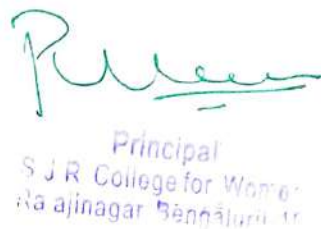 Principal
S J R College for Women
Rajajinagar Bengaluru